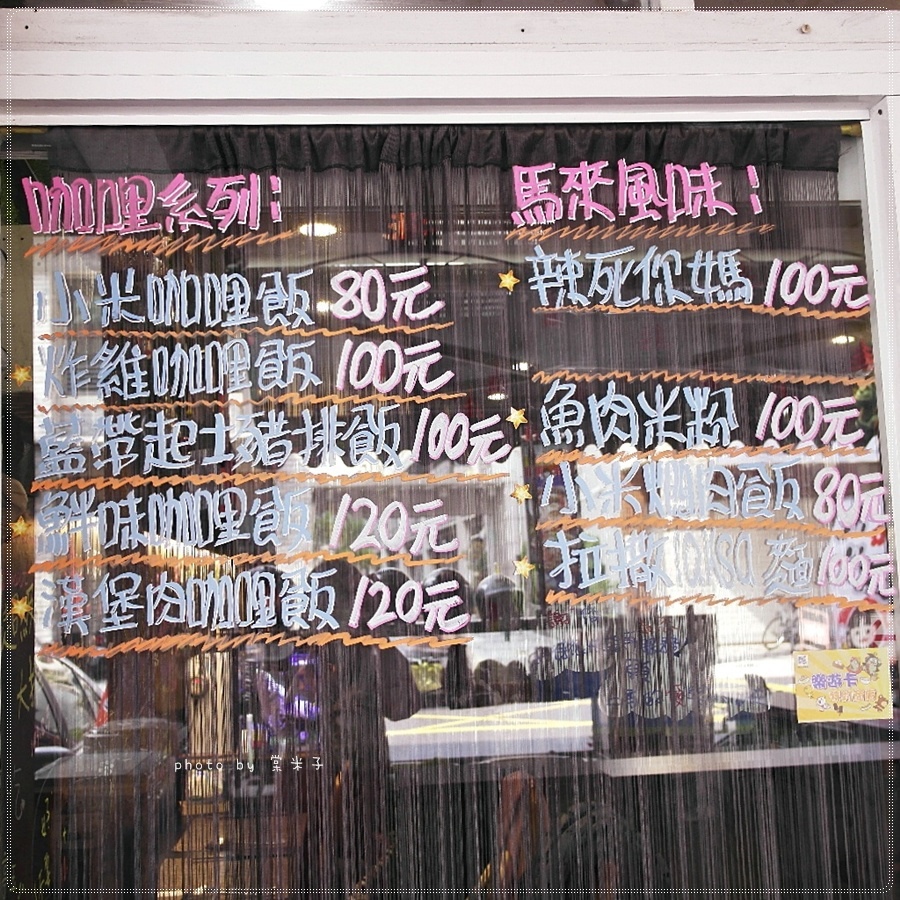 咖哩系列：
小米咖哩飯 80元
炸雞咖哩飯 100元
藍帶起士豬排飯 100元
鮮味咖哩飯 120元
漢堡肉咖哩飯 120元
馬來風味：
辣死你媽 100元
魚肉米粉 100元
小米燜肉飯 80元
拉撒 麵 100元
樂遊卡
photo by 棠米子